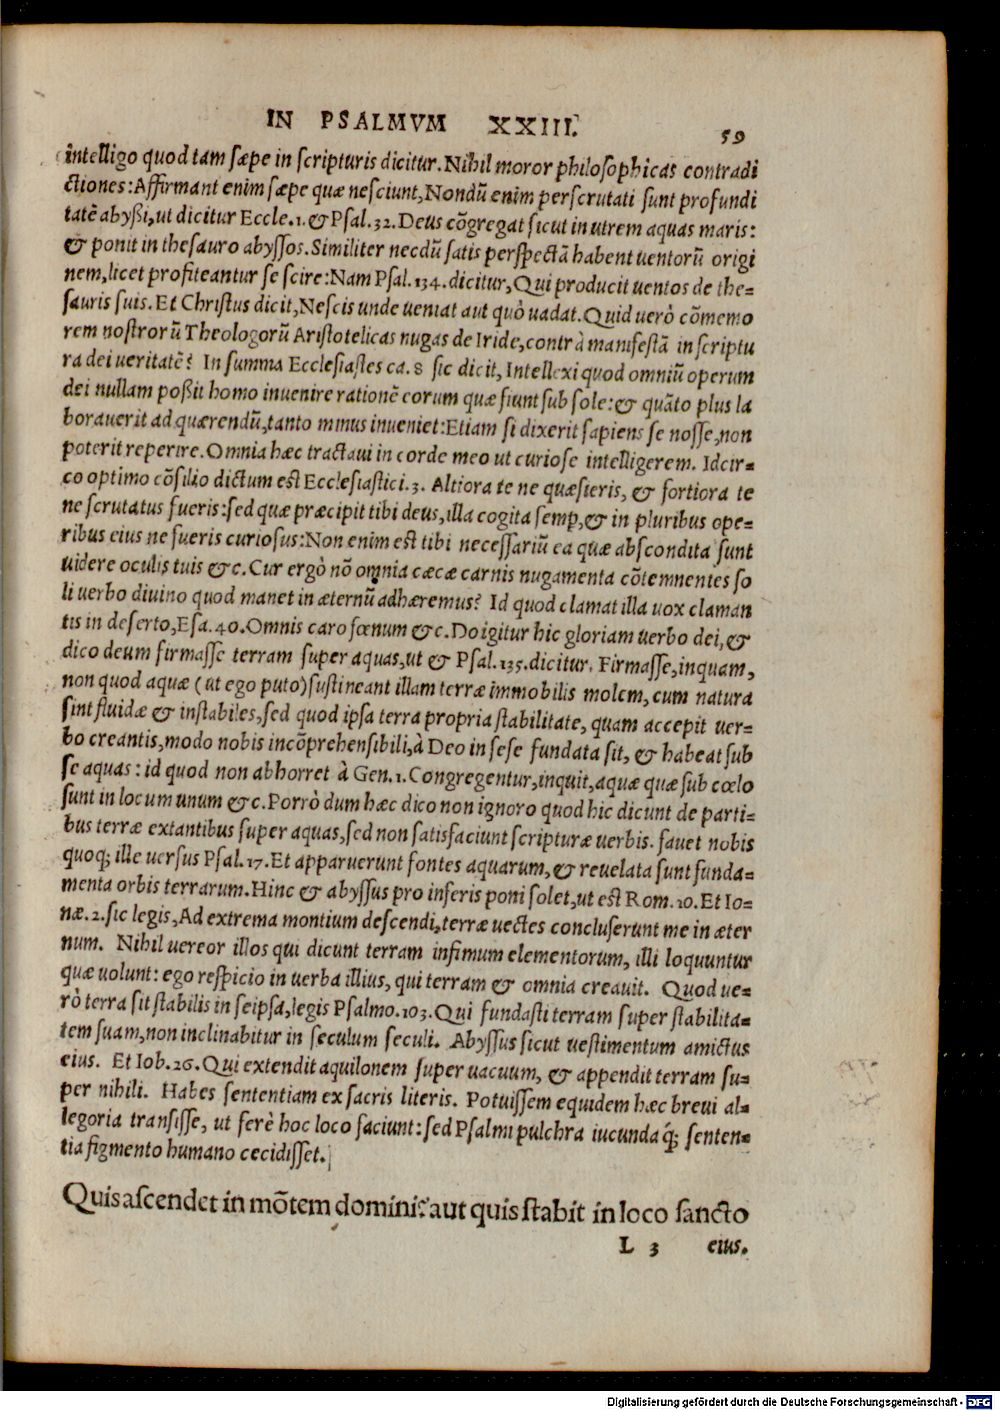 IN PSALMVM XXIII.
59
intelligo quod tam sæpe in scripturis dicitur. Nihil moror philosophicas contradi
ctiones: Affirmant enim sæpe quæ nesciunt, Nondũ enim perscrutati sunt profundi
tatẽ abyßi, ut dicitur Eccle. 1. & Psal. 32. Deus cõgregat sicut in utrem aquas maris:
& ponit in thesauro abyssos. Similiter necdũ satis perspectã habent uentorũ origi
nem, licet profiteantur se scire: Nam Psal. 134. dicitur, Qui producit uentos de the=
sauris suis. Et Christus dicit, Nescis unde ueniat aut quò uadat. Quid uerò cõmemo
rem nostrorũ Theologorũ Aristotelicas nugas de Iride, contrà manifestã in scriptu
ra dei ueritatẽ? In summa Ecclesiastes ca. 8 sic dicit, Intellexi quod omniũ operum
dei nullam poßit homo inuenire rationẽ eorum quæ fiunt sub sole: & quãto plus la
borauerit ad quærendũ, tanto minus inueniet: Etiam si dixerit sapiens se nosse, non
poterit reperire. Omnia hæc tractaui in corde meo ut curiose intelligerem. Idcir=
co optimo cõsilio dictum est Ecclesiastici. 3. Altiora te ne quæsieris, & fortiora te
ne scrutatus fueris: sed quæ præcipit tibi deus, illa cogita semp, & in pluribus ope=
ribus eius ne fueris curiosus: Non enim est tibi necessariũ ea quæ abscondita sunt
uidere oculis tuis &c. Cur ergò nõ omnia cæcæ carnis nugamenta cõtemnentes so
li uerbo diuino quod manet in æternũ adhæremus? Id quod clamat illa uox claman
tis in deserto, Esa. 40. Omnis caro fœnum &c. Do igitur hic gloriam uerbo dei, &
dico deum firmasse terram super aquas, ut & Psal. 135. dicitur. Firmasse, inquam,
non quod aquæ (ut ego puto) sustineant illam terræ immobilis molem, cum natura
sint fluidæ & instabiles, sed quod ipsa terra propria stabilitate, quam accepit uer=
bo creantis, modo nobis incõprehensibili, à Deo in sese fundata sit, & habeat sub
se aquas: id quod non abhorret à Gen. 1. Congregentur, inquit, aquæ quæ sub cœlo
sunt in locum unum &c. Porrò dum hæc dico non ignoro quod hic dicunt de parti=
bus terræ extantibus super aquas, sed non satisfaciunt scripturæ uerbis. fauet nobis
quoq; ille uersus Psal. 17. Et apparuerunt fontes aquarum, & reuelata sunt funda=
menta orbis terrarum. Hinc & abyssus pro inferis poni solet, ut est Rom. 10. Et Io=
næ. 2. sic legis, Ad extrema montium descendi, terræ uectes concluserunt me in æter
num. Nihil uereor illos qui dicunt terram infimum elementorum, illi loquuntur
quæ uolunt: ego respicio in uerba illius, qui terram & omnia creauit. Quod ue=
rò terra sit stabilis in seipsa, legis Psalmo. 103. Qui fundasti terram super stabilita=
tem suam, non inclinabitur in seculum seculi. Abyssus sicut uestimentum amictus
eius. Et Iob. 26. Qui extendit aquilonem super uacuum, & appendit terram su=
per nihili. Habes sententiam ex sacris literis. Potuissem equidem hæc breui al=
legoria transisse, ut ferè hoc loco faciunt: sed Psalmi pulchra iucundaq́; senten=
tia figmento humano cecidisset.
Quis ascendet in mõtem domini? aut quis stabit in loco sancto
L 3 eius.
Digitalisierung gefördert durch die Deutsche Forschungsgemeinschaft - DFG